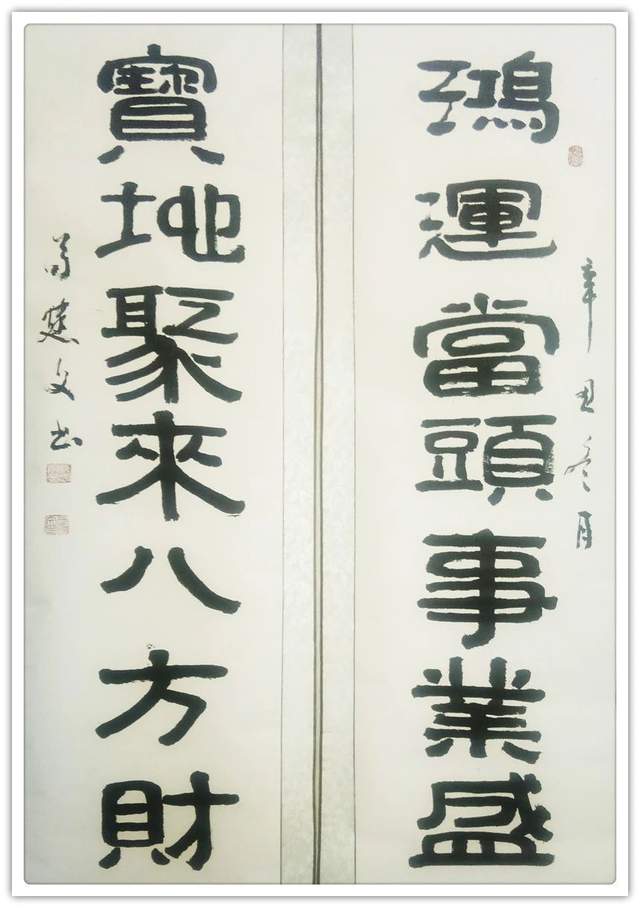 鴻運當頭事業盛
辛丑冬月
寶地聚來八方財
文书